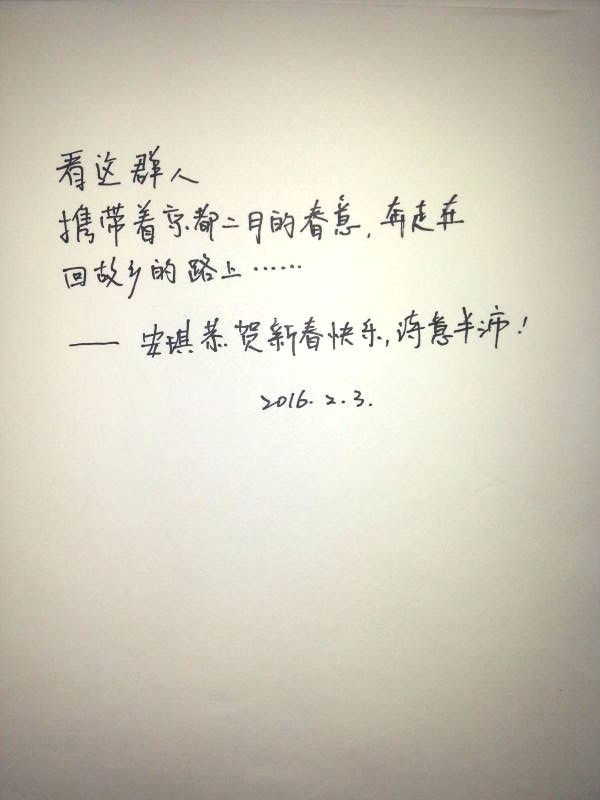 看这群人
携带着京都二月的春意,奔走在
回故乡的路上……
—— 安琪恭贺新春快乐,诗意丰沛!
2016.2.3.